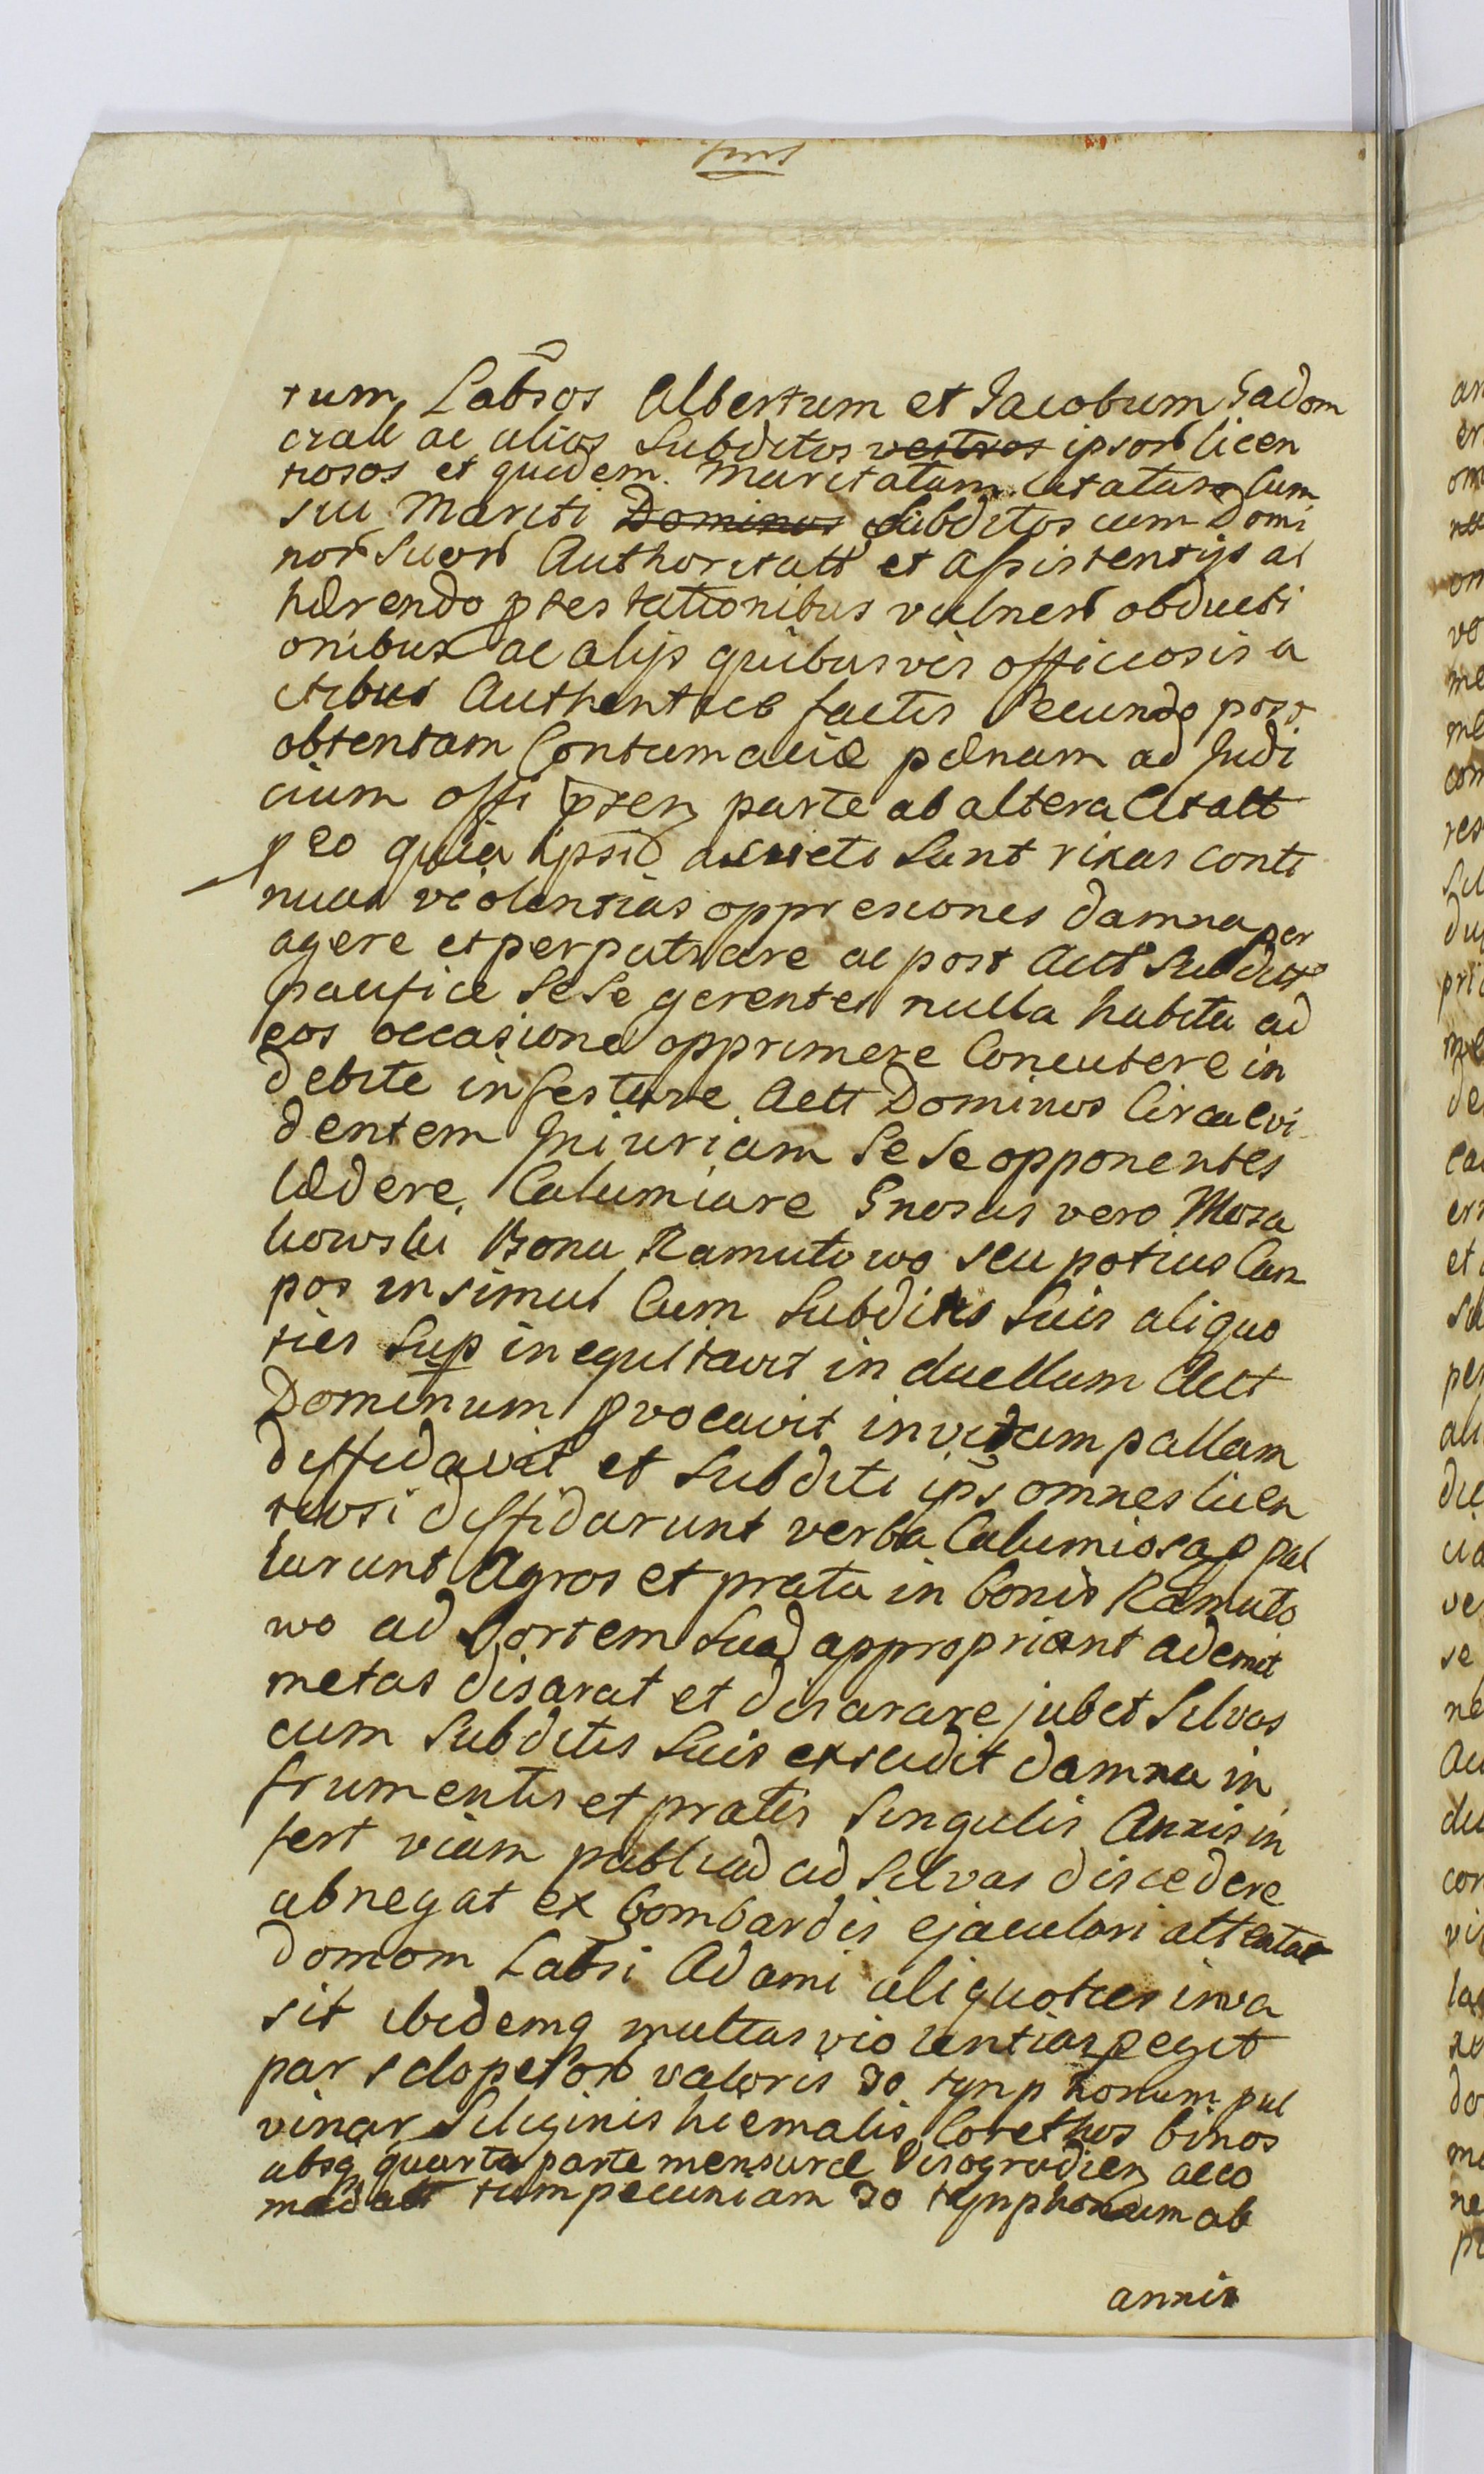 tum, Labsos Albertum et Jacobum Gadom
czak ac alios Subditos vestros ipsor licen
tiosos et quidem. Maritatam. Citatam Cum
sui Mariti Dominos Subditos cum Domi
nor Suor Authoritatt et assistentijs ad
hærendo ptestationibus vulner obducti
onibus ac alijs quibusvis officiosis a
ctibus Authentice factis Secundo post
obtentam Contumaciæ pænam ad Judi
cium offi pten parte ab altera Citatt
p eo quia ipsi assueti Sunt rixas conti
nuas violentias oppresiones damna per
agere et perpatrare ac post Act Subdit
pacifice Sese gerentes nulla habita ad
eos occasione opprimere Concutere in
debite infestare Actt Dominos Circa evi
dentem Injuriam Sese opponentes
lædere, Calumiare Gnosus vero Moza
kowski Bona Ramutowo seu potius Cam
pos insimul Cum Subditis Suis aliquo
ties Sup inequitavit in duellum Act
Dominum pvocavit invitam pallam
diffidavit et Subditi ips omnes licen
tiosi diffidarunt verba Calumiosa p pal
larunt Agros et prata in bonis Ramuto
wo ad Sortem Suad appropriant ademit
metas disarat et disarare jubet Silvas
cum Subditis Suis excidit damna in
frumentis et pratis Singulis Annis in
fert viam publicad ad Silvas discedere
abnegat ex bombardis ejaculari attentat
domom Labsi Adami aliquoties inva
sit ibidemq multas violentias pegit
par sclopetor valoris 30 tynphonum pul
vinar Siliginis hiemalis Corethos binos
absq quarta parte mensuræ Visogrodien acco
modatt tum pecuniam 30 tynphonum ab
annis